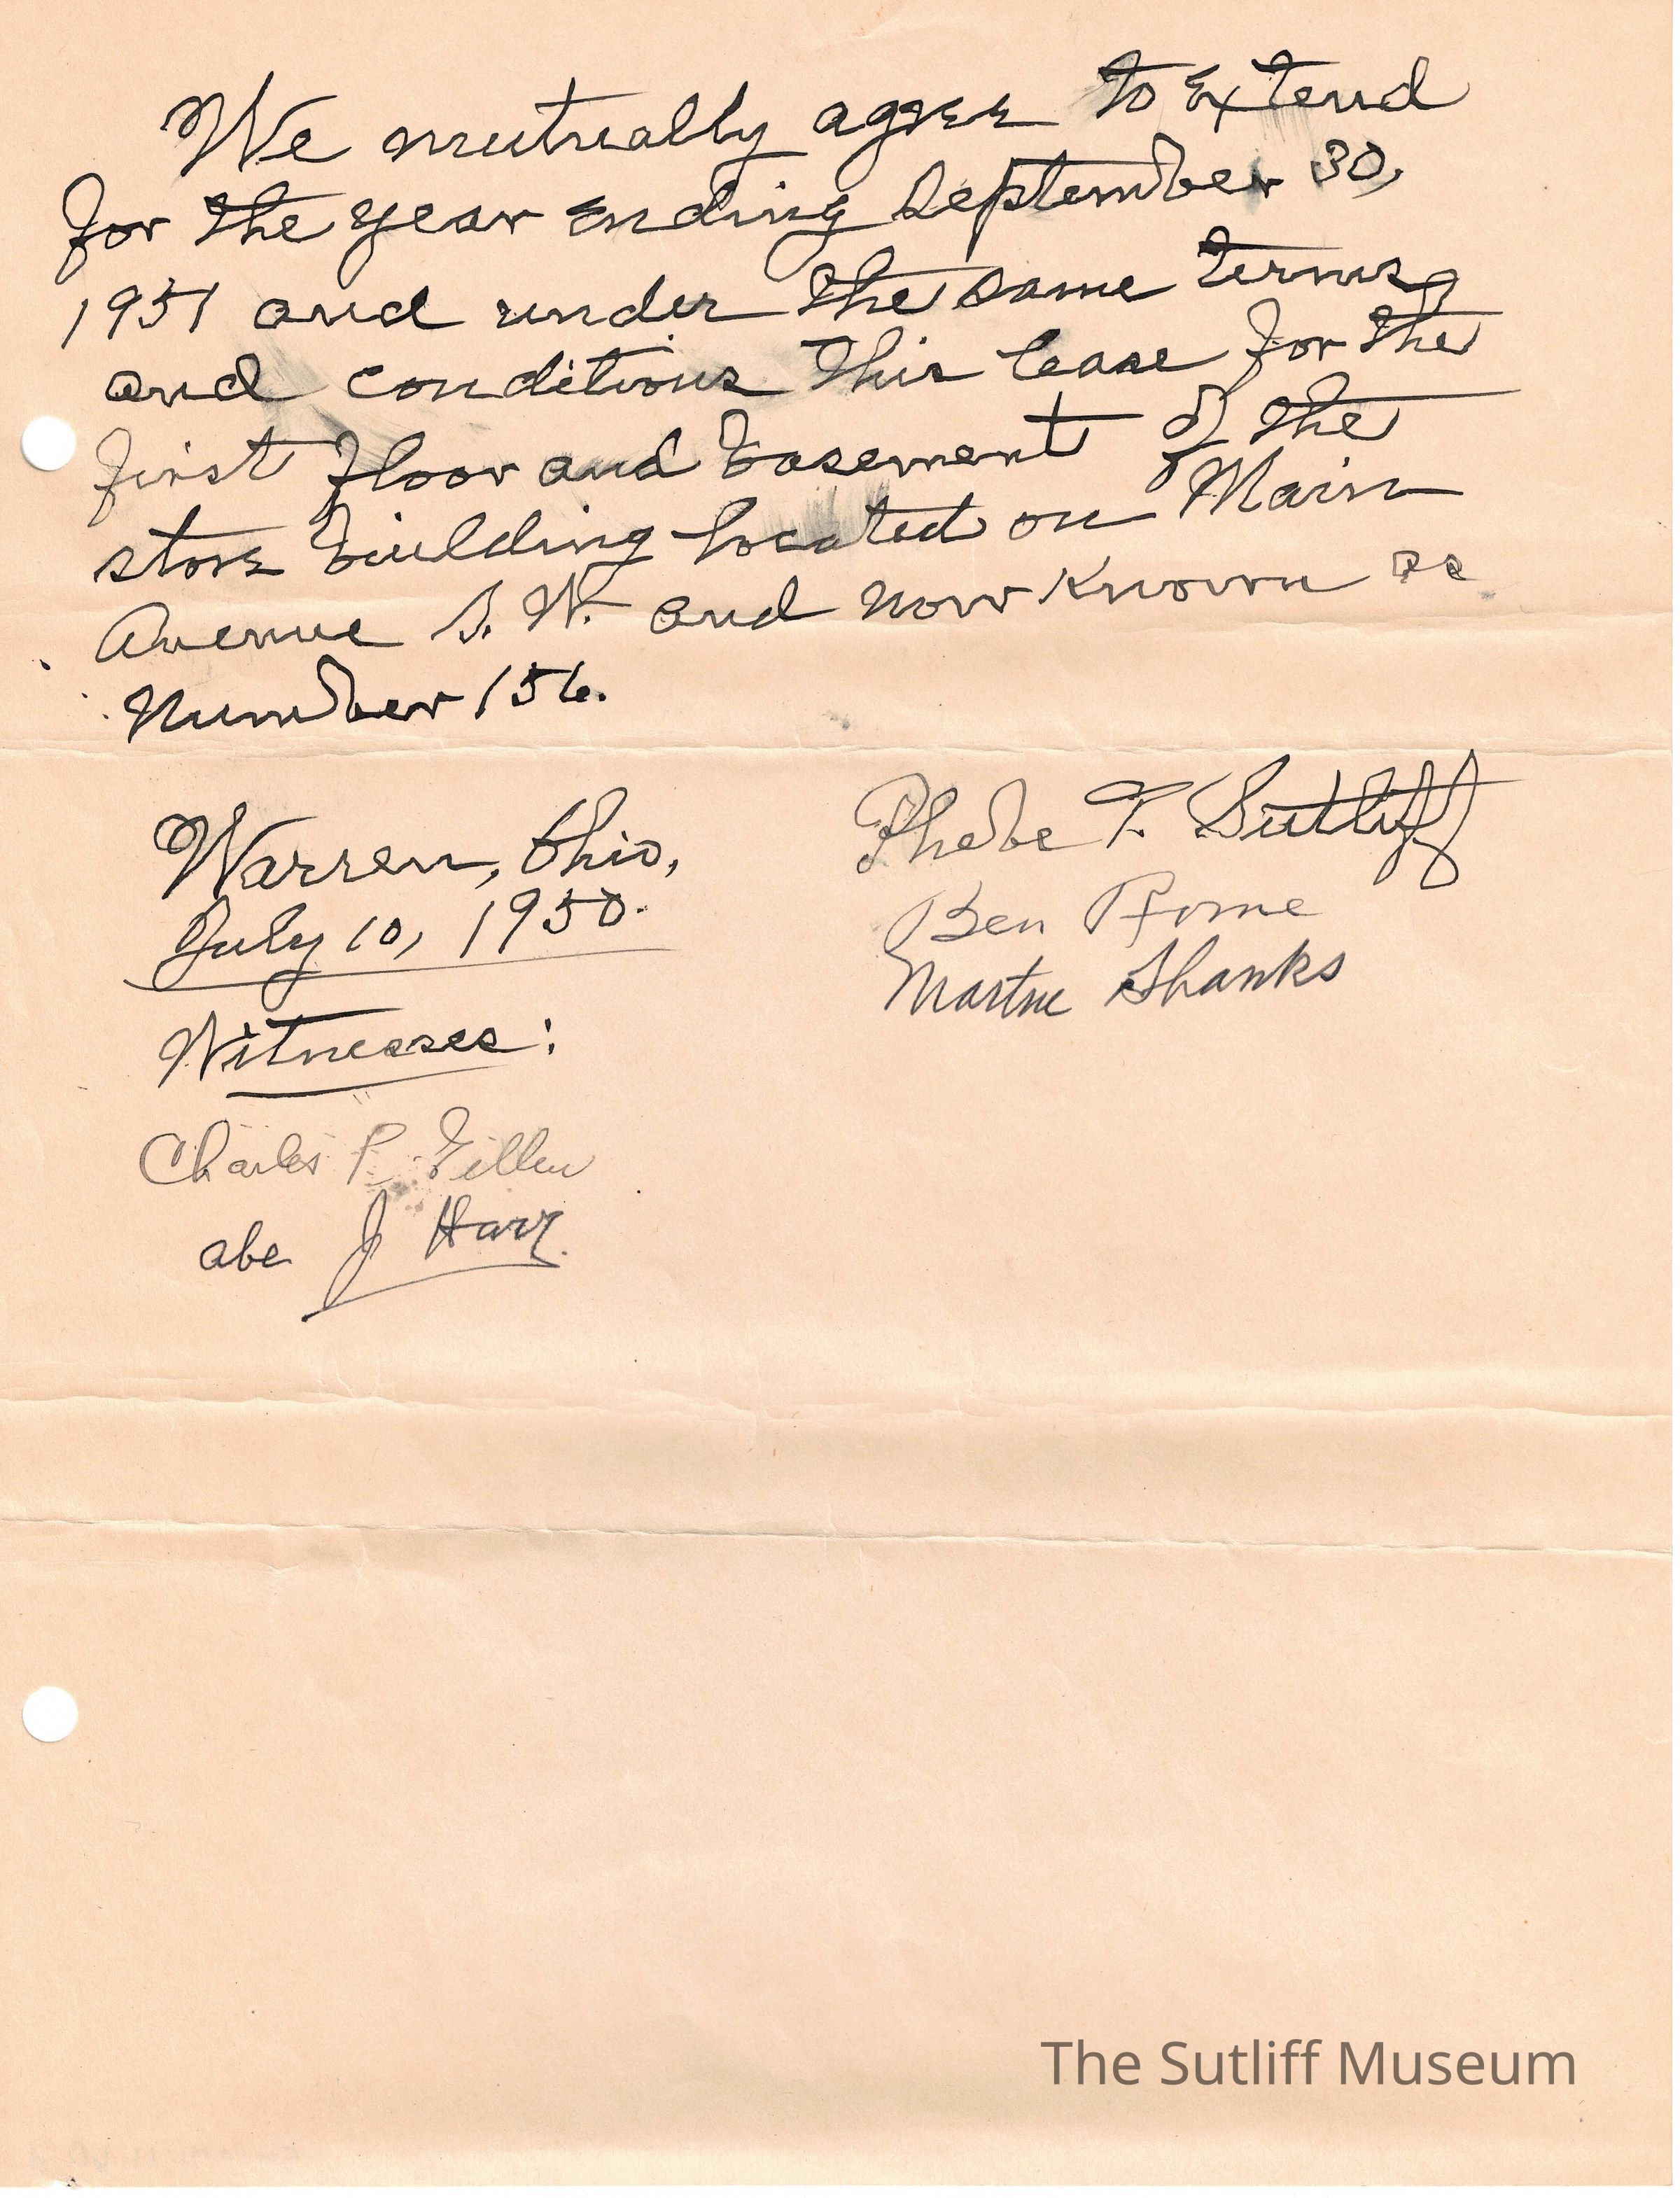 We mutually agree to Extend
for the year Ending September 30,
1951 and under the same terms
and conditions this lease for the
first floor and basement of the
store building located on Main
Avenue S. W. and now known as
number 156.
Warren, Ohio,
July 10, 1950.
Phebe T. Sutliff
Ben Rome
Martin Shanks
Witnesses:
Charles P. Gillen
abe J
The Sutliff Museum